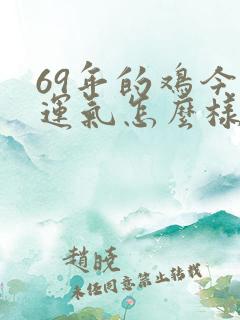 69年的鸡今
運氣怎麼樣
趙曉
未任同意禁止转载